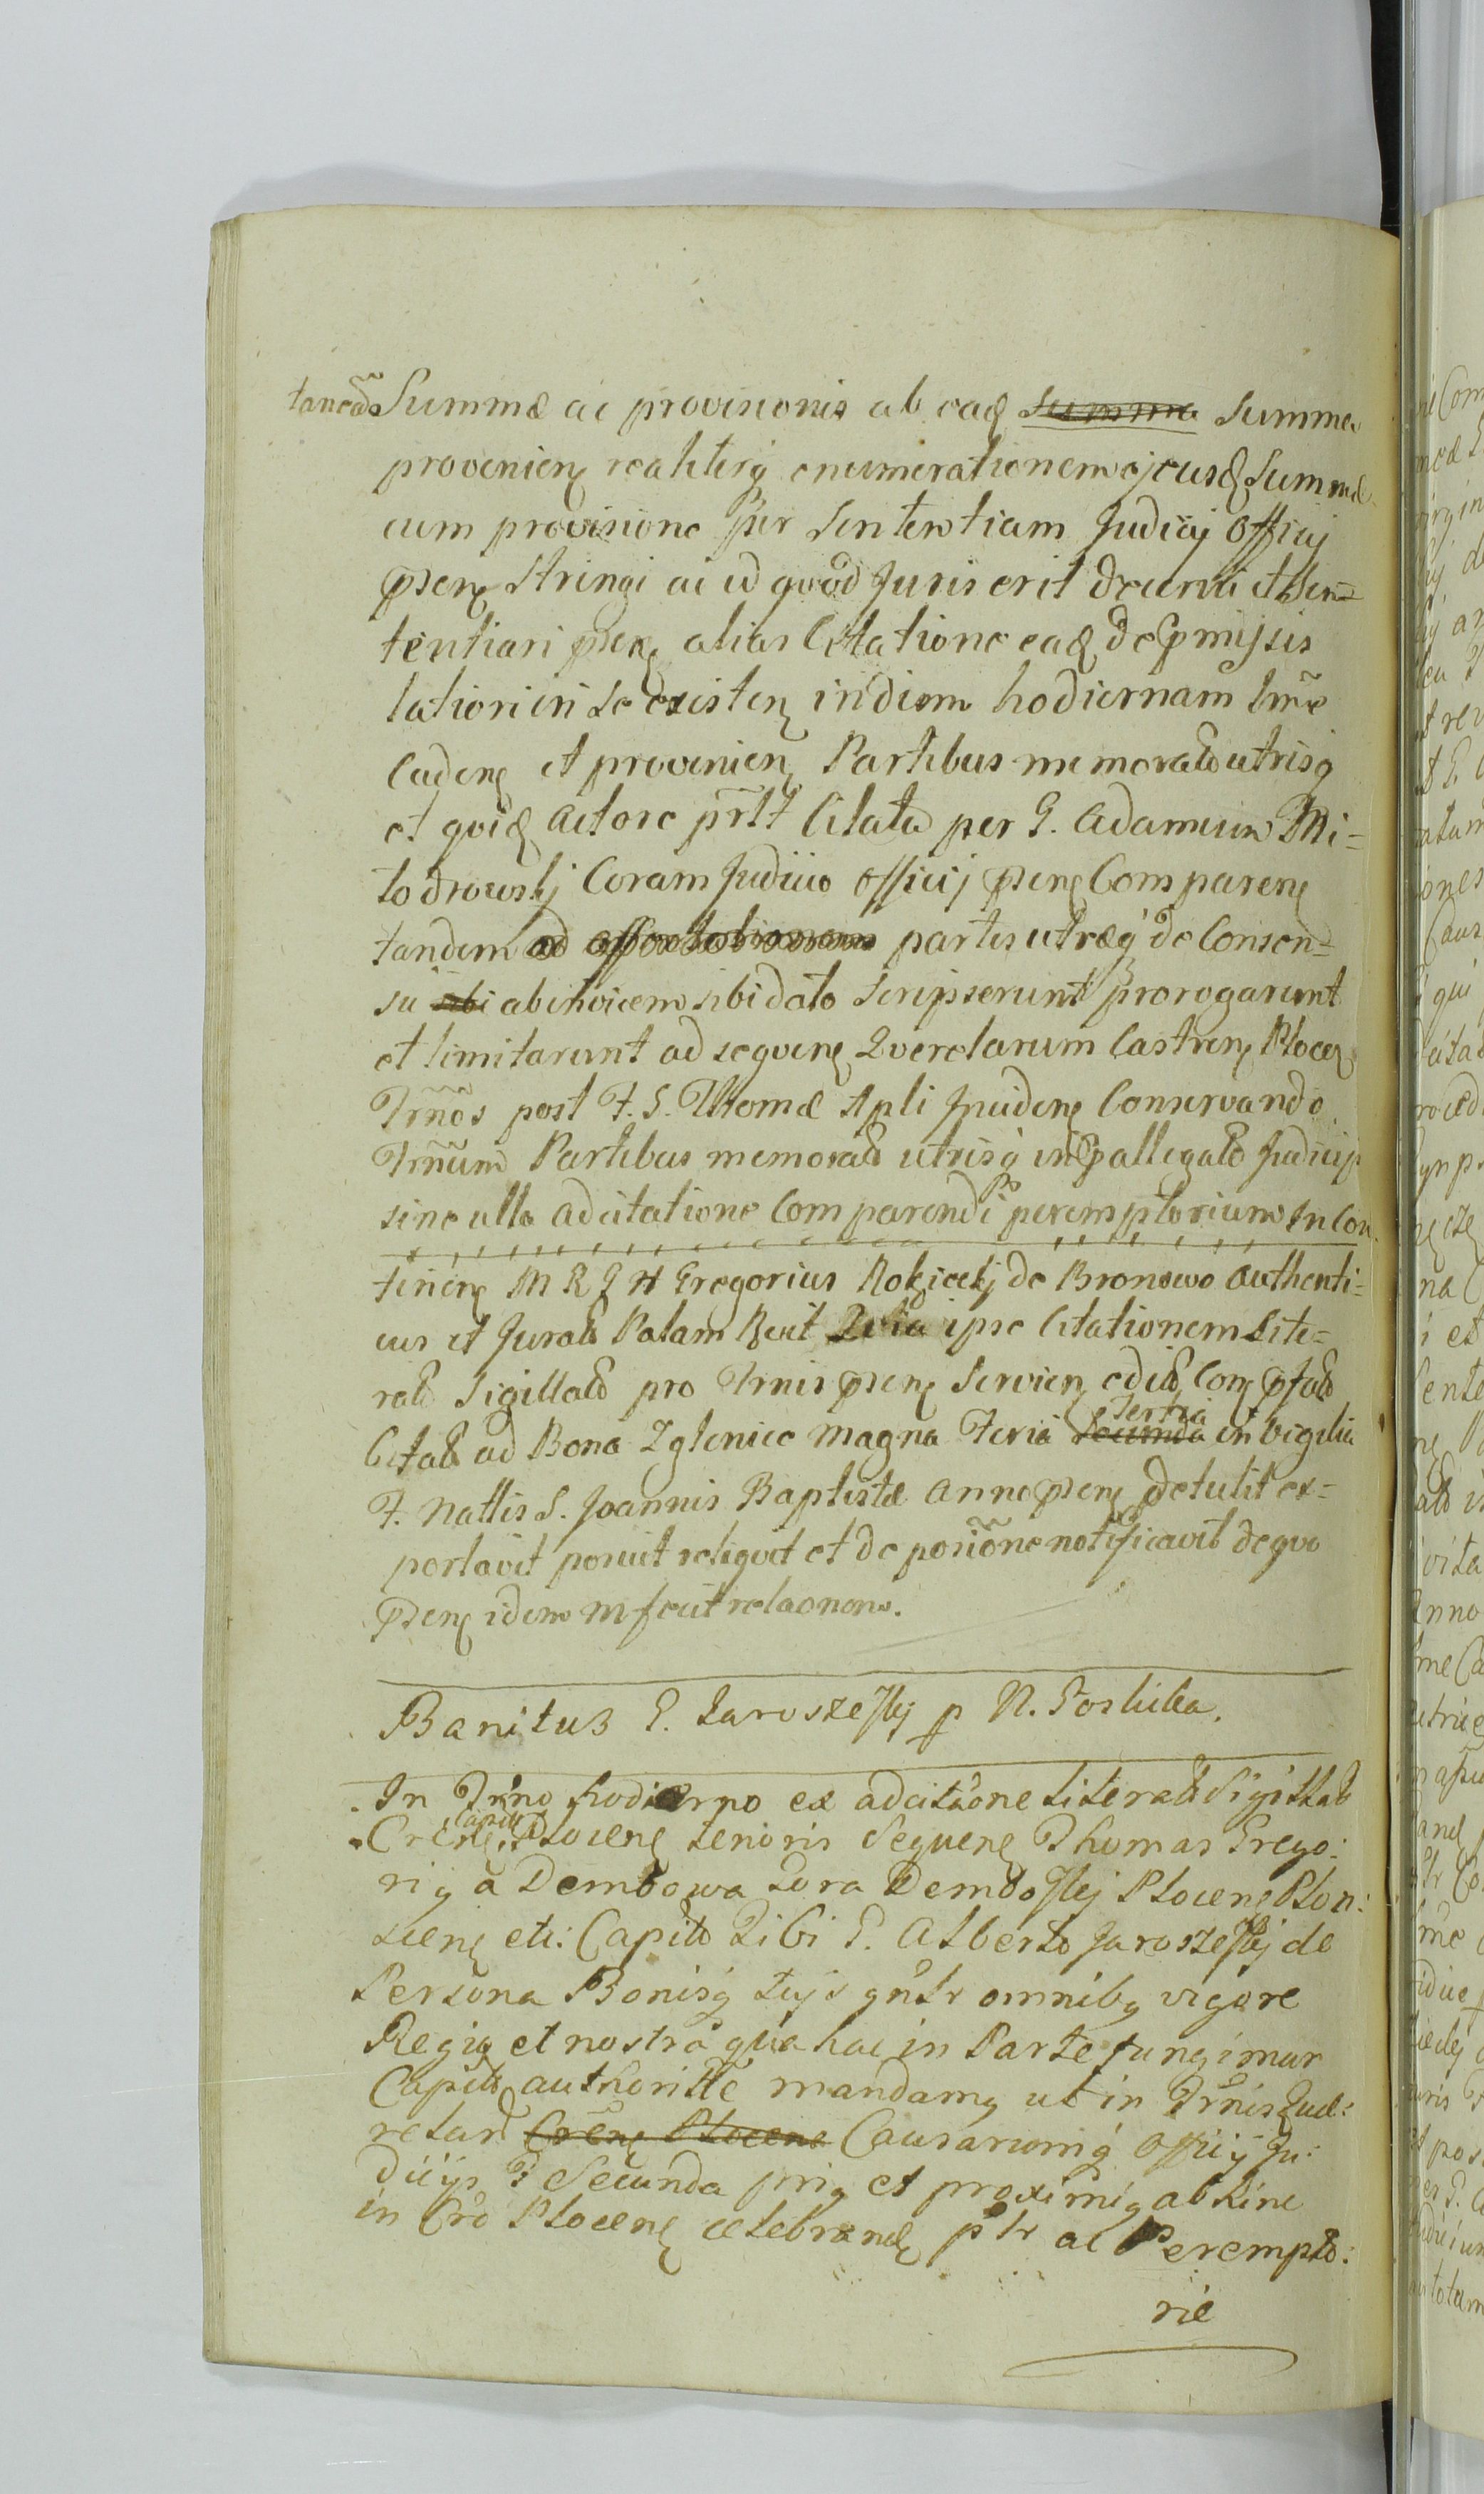 Summæ ac provisionis ab ead summa Summa
provenien realiterq enumerationem ejcusd Summæ
cum provisione per Sententiam Judicij Officij
pnen Stringi ac id quod Juris erit decerni et Sen=
tentiari pnen alias Citatione ead de pmissis
latiori in se existen in diem hodiernam tmē
Caden et provenien Partibus memorat utrisq
et quid Actore prlt Citato per G. Adamum Mi=
todrowskj Coram Judicio Officij pnen Comparen
tandem ad partes utræq de Consen=
su sibi abinvicem sibi dato Scripserunt prorogarunt
et limitarunt ad sequen Querelarum Castren Plocen
Trm̃os post F. S. Thomæ Apli inciden Conservando
Trm̃um Partibus memorat utrisq in pallegato Judicijs
sine ulla adcitatione Comparendi peremptorium In Con
tinen M R G H Gregorius Rokickj de Bronowo Authenti=
cus et Jurat Palam Recit Quia ipse Citationem Lite=
rat Sigillat pro Trnis pnen Servien edit Con pfat
Citat ad Bona Zglenice Magna Feria secunda Tertia in vigilia
F. Nattis S. Joannis Baptistæ Anno pnen detulit ex=
portavit posuit reliquit et de positione notificavit de quo
pnen idem Mr fecit relaonem.
Banitus G. Jaroszeskj p N. Goskiba.
In Trno hodierno ex adcitaone literat Sigillat
Cren Capit Plocen tenoris Sequen Thomas Grego:
rig a Dembowa Gora Demboskj Plocen Plon:
scen etc: Capit Tibi G. Alberto Jaroszeskj de
Persona Bonisq tujs gnlr omnibg vigore
Regia et nostra qua hac in Parte fungimur
Capit authoritte mandamg ut in Trnis Que:
relar Cren Plocen Causarumq Officij Ju:
dicijs F Secunda prig et proximig abhinc
in Cro Plocen celebrand pslr ac Perempto:
rie